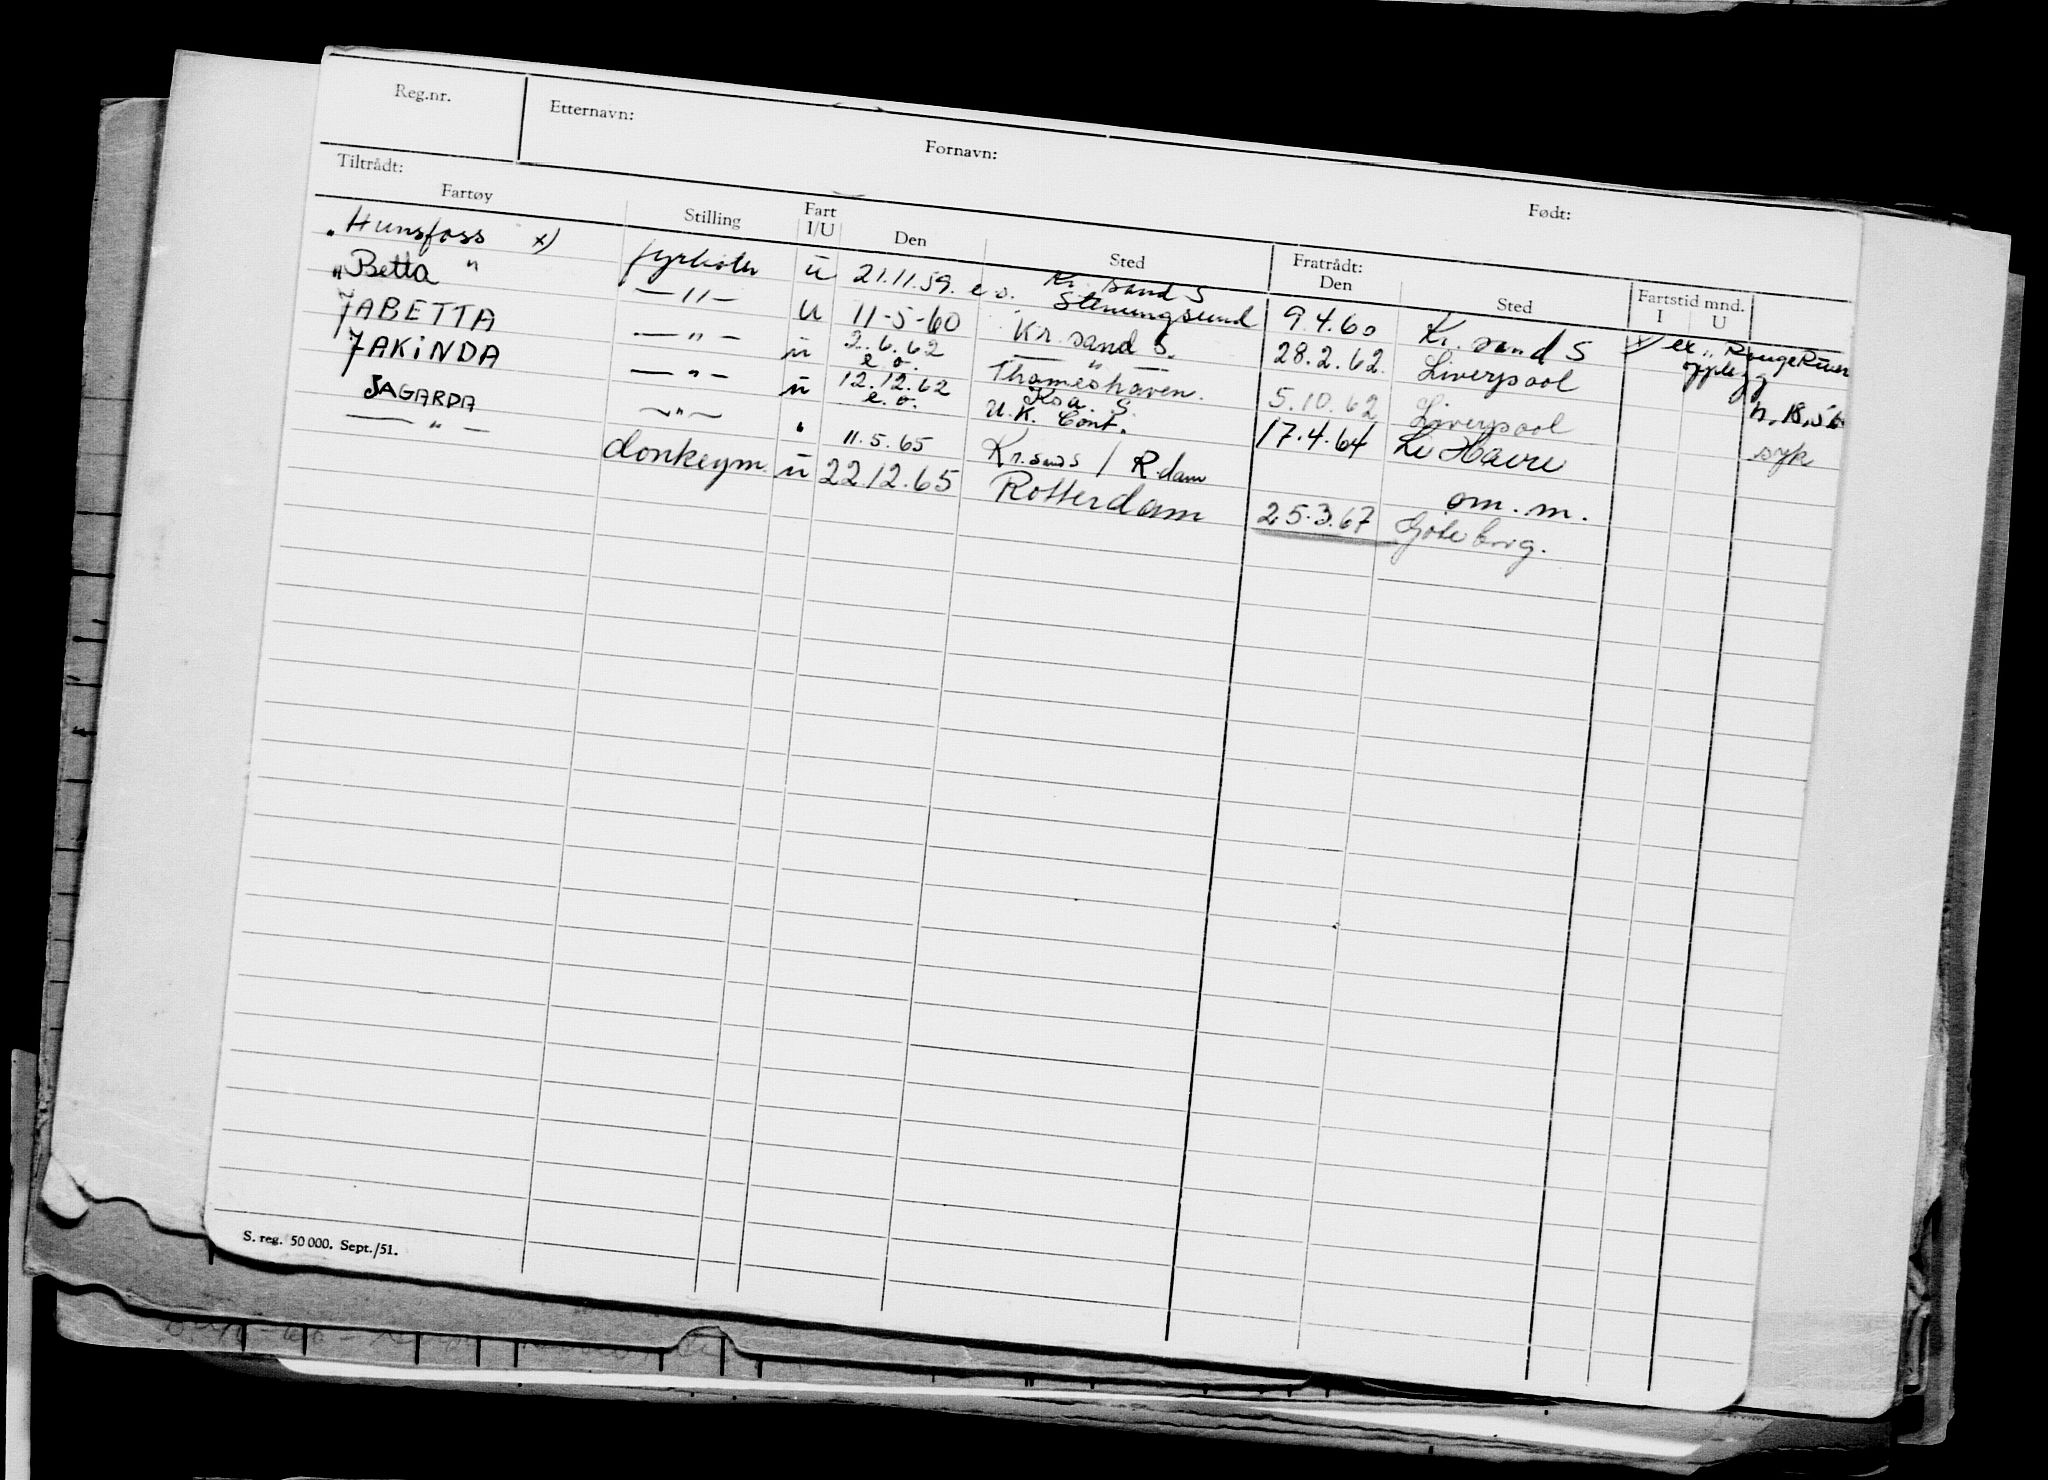 Reg.nr. Etternavn: Fornavn: Født:
Tiltrådt: Fratrådt: Fartstid mnd.
Fartøy Stilling Fart I/U Den Sted Den Sted I U
"Hunsfoss x) fyrbøter u 21.11.59. e.o. Kr.sand S Stenungsund 9.4.60 Kr. sand S x) ex "Rouge River
"Betta " —"— U 11-5-60 Kr. sand S. 28.2.62. Liverpool opplegg
JABETTA —"— u 2.6.62 e.o. —"— Thameshaven. 5.10.62 Liverpool
JAKINDA —"— u 12.12.62 e.o. Krsa. S. U.K. Cont. 17.4.64 Le Havre syk
JAGARDA —"— " 11.5.65 Kr.sand S / R.dam om. m.
—"— donkeym. u 22.12.65 Rotterdam 25.3.67 Göteborg.
S. reg. 50 000. Sept./51.